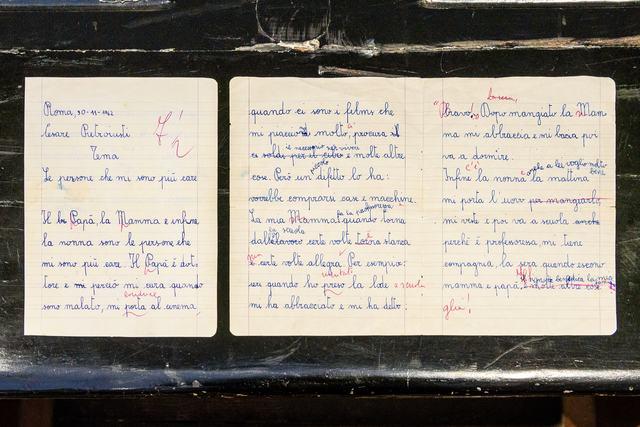 Roma, 30-11-1962
Cesare Pietroiusti
7½
Tema
Le persone che mi sono più care
Il Papà, la Mamma e infine
la nonna sono le persone che
mi sono più care. Il Papà è dot-
tore e mi perciò mi cura quando
conduce
sono malato, mi porta al cinema
quando ci sono i films che
mi piacciono molto, procura
il necessario per vivere
soldi per il cibo e molte altre
piccolo
cose. Però un difetto lo ha:
vorrebbe comprarsi case e macchine.
La mia Mamma quando torna
la scuola
dal lavoro certe volte torna stanca
e certe volte allegra. Per esempio:
ieri quando ho preso la lode a scuola
mi ha abbracciato e mi ha detto:
"Bravo!" Dopo mangiato la Mam
ma mi abbraccia e mi bacia poi
va a dormire.
anche a lei voglio molto
bene
Infine la nonna la mattina
mi porta l'uovo per mangiarlo
mi veste e poi va a scuola anche
perché è professoressa, mi tiene
compagnia la sera quando escono
mamma e papà, e molte altre cose
la mia
glia!